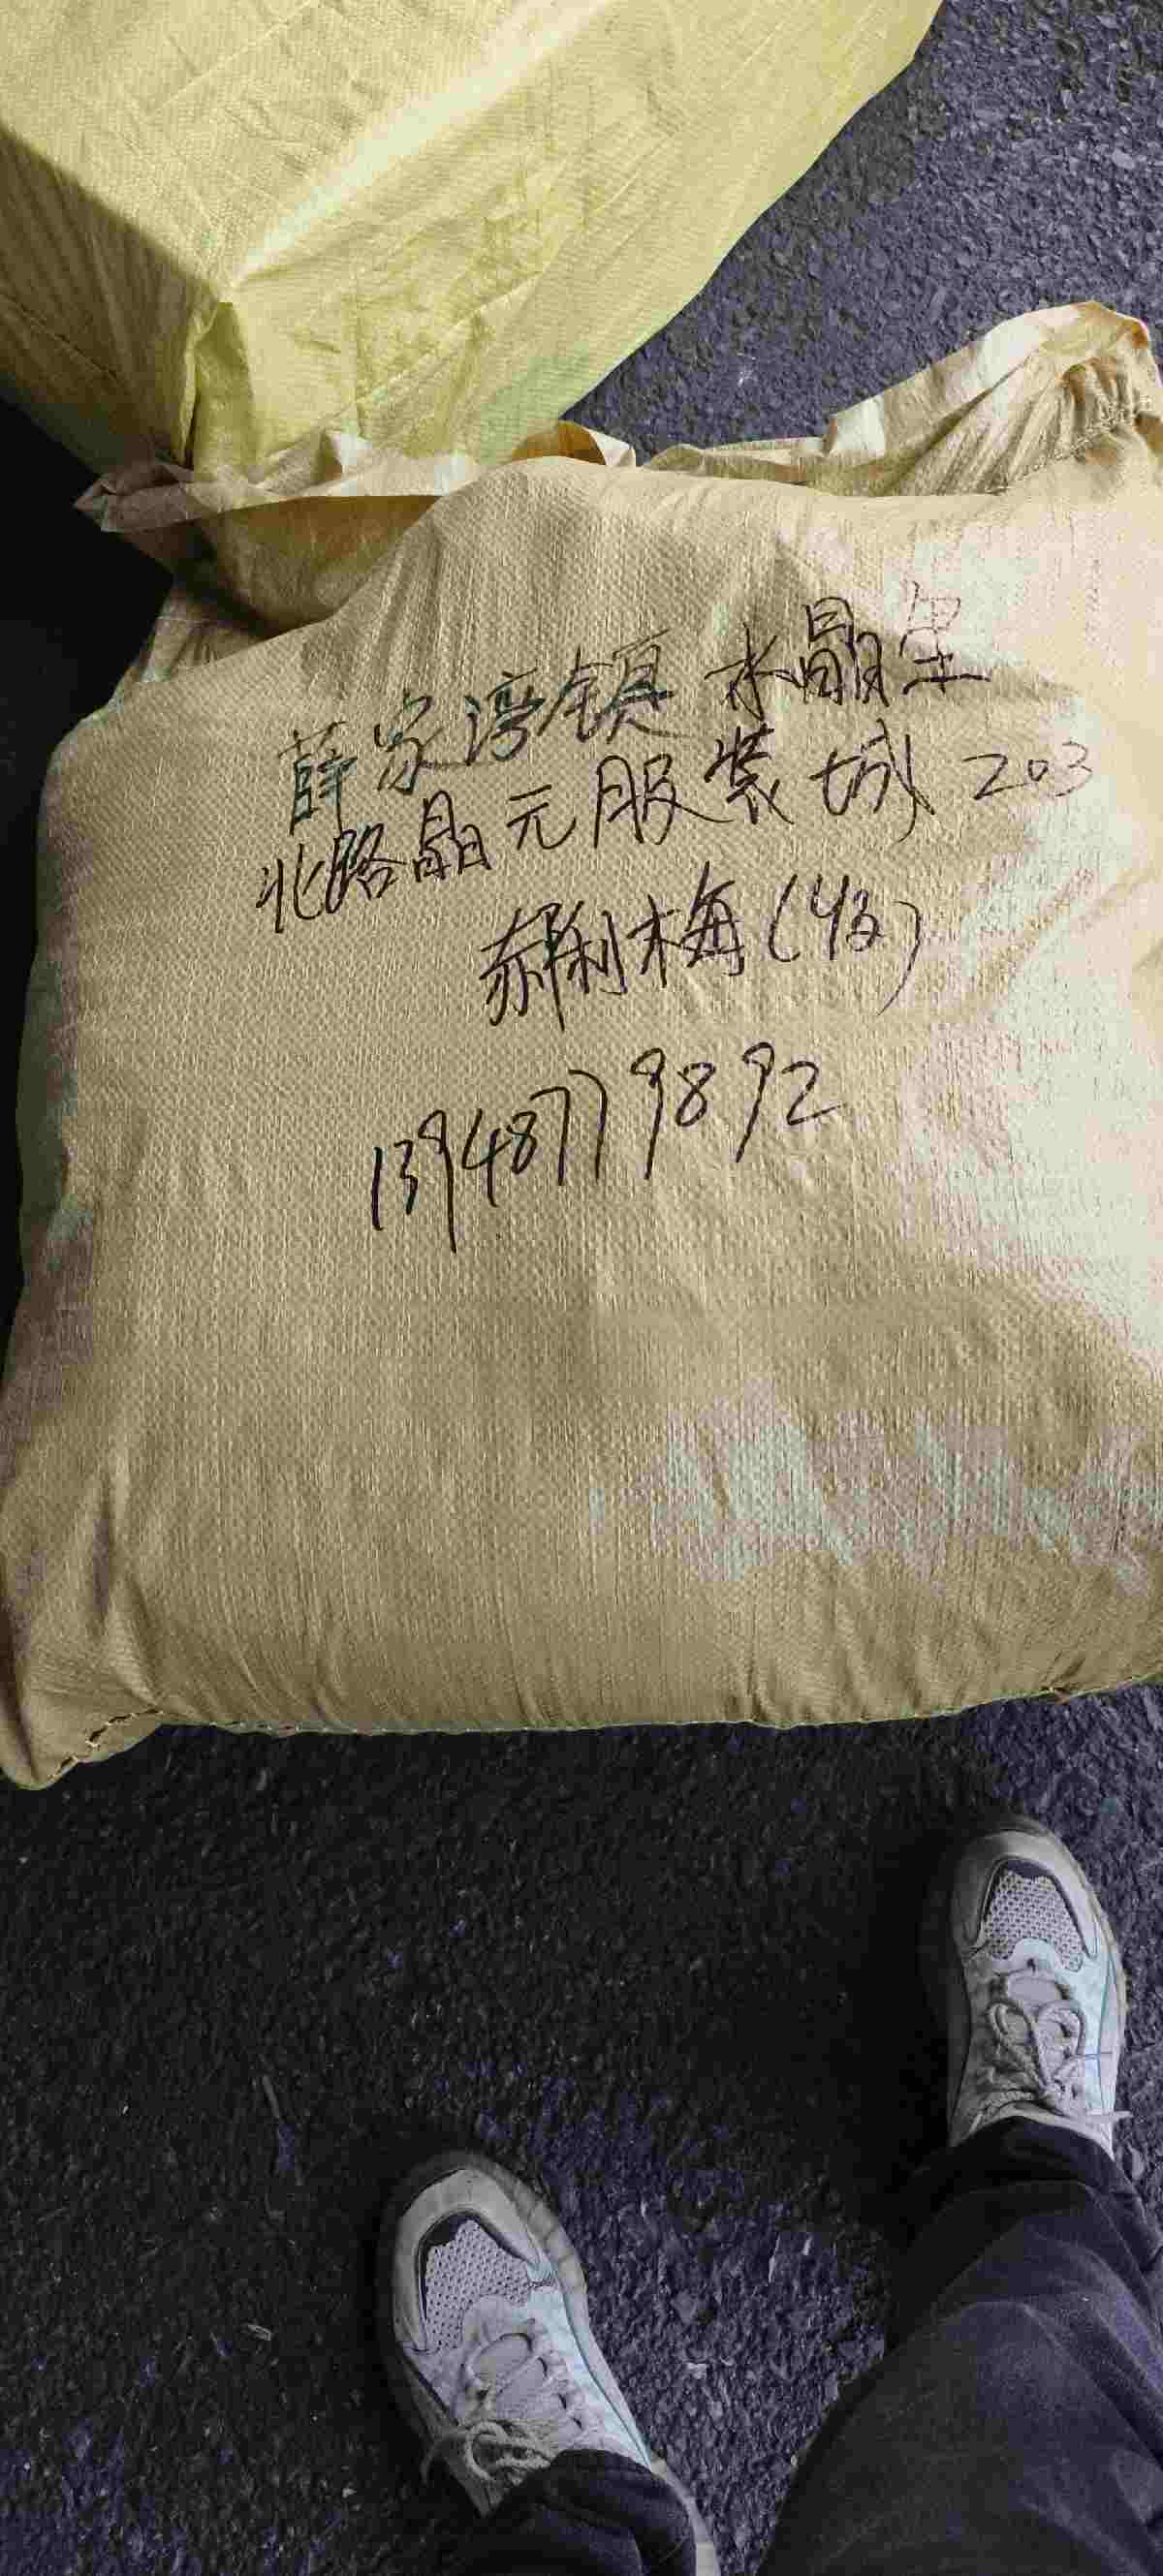 薛家湾镇 水晶里
北路晶元服装城 203
郝利梅(收)
13948779892